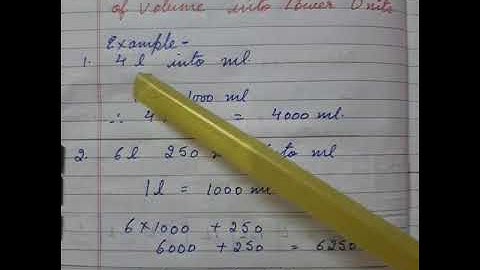 of Volume into Lower Units
Example-
1. 4 l into ml
1000 ml
∴ 4 = 4000 ml.
2. 6l 250 into ml
1l = 1000 m
6 x 1000 + 250
6000 + 250 = 6250